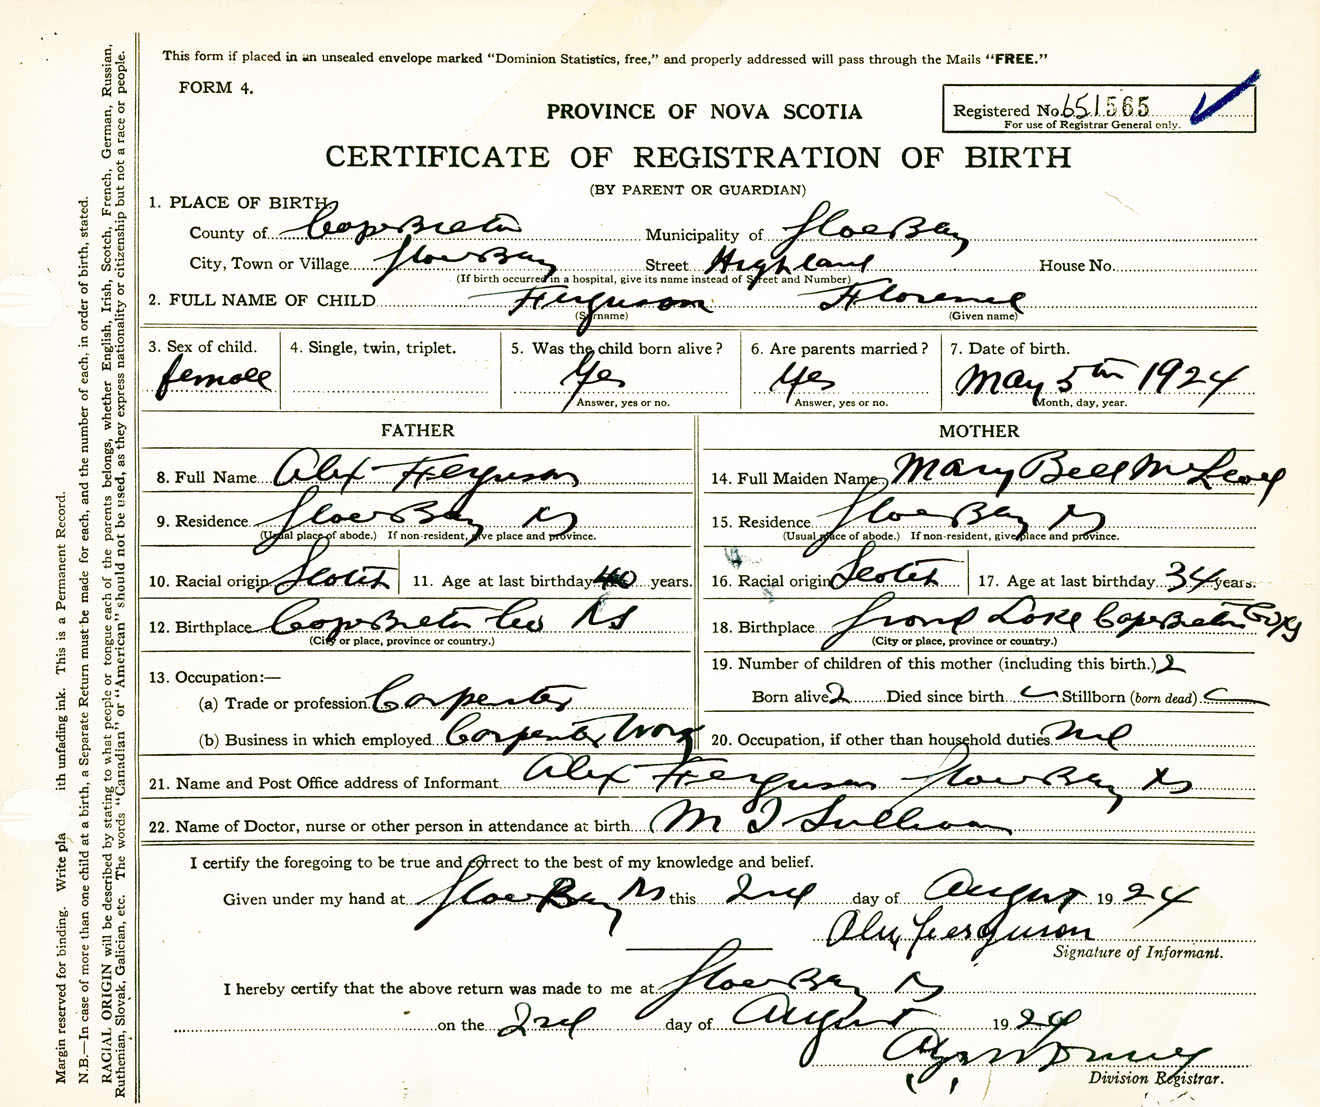 This form if placed in an unsealed envelope marked "Dominion Statistics, free," and properly addressed will pass through the Mails "FREE."
FORM 4.
PROVINCE OF NOVA SCOTIA
Registered No. 651565
For use of Registrar General only.
CERTIFICATE OF REGISTRATION OF BIRTH
(BY PARENT OR GUARDIAN)
1. PLACE OF BIRTH
County of Cape Breton Municipality of Glace Bay
City, Town or Village Glace Bay Street Highland House No.
(If birth occurred in a hospital, give its name instead of Street and Number)
2. FULL NAME OF CHILD Ferguson Florence
(Surname) (Given name)
3. Sex of child. 4. Single, twin, triplet. 5. Was the child born alive? 6. Are parents married? 7. Date of birth.
female Yes Yes May 5th 1924
Answer, yes or no. Answer, yes or no. Month, day, year.
FATHER MOTHER
8. Full Name Alex Ferguson 14. Full Maiden Name Mary Bell McLeod
9. Residence Glace Bay NS 15. Residence Glace Bay NS
(Usual place of abode.) If non-resident, give place and province. (Usual place of abode.) If non-resident, give place and province.
10. Racial origin Scotch 11. Age at last birthday 40 years. 16. Racial origin Scotch 17. Age at last birthday 34 years.
12. Birthplace Cape Breton Co NS 18. Birthplace Grand Lake Cape Breton Co NS
(City or place, province or country.) (City or place, province or country.)
19. Number of children of this mother (including this birth.) 2
13. Occupation:—
(a) Trade or profession Carpenter Born alive 2 Died since birth Stillborn (born dead)
(b) Business in which employed Carpenter Work 20. Occupation, if other than household duties Nil
21. Name and Post Office address of Informant Alex Ferguson Glace Bay NS
22. Name of Doctor, nurse or other person in attendance at birth M T Sullivan
I certify the foregoing to be true and correct to the best of my knowledge and belief.
Given under my hand at Glace Bay NS this 2nd day of August 1924
Alex Ferguson
Signature of Informant.
I hereby certify that the above return was made to me at Glace Bay NS
on the 2nd day of August 1924
Division Registrar.
Margin reserved for binding. Write pla ith unfading ink. This is a Permanent Record.
N.B.—In case of more than one child at a birth, a Separate Return must be made for each, and the number of each, in order of birth, stated.
RACIAL ORIGIN will be described by stating to what people or tongue each of the parents belongs, whether English, Irish, Scotch, French, German, Russian,
Ruthenian, Slovak, Galician, etc. The words "Canadian" or "American" should not be used, as they express nationality or citizenship but not a race or people.